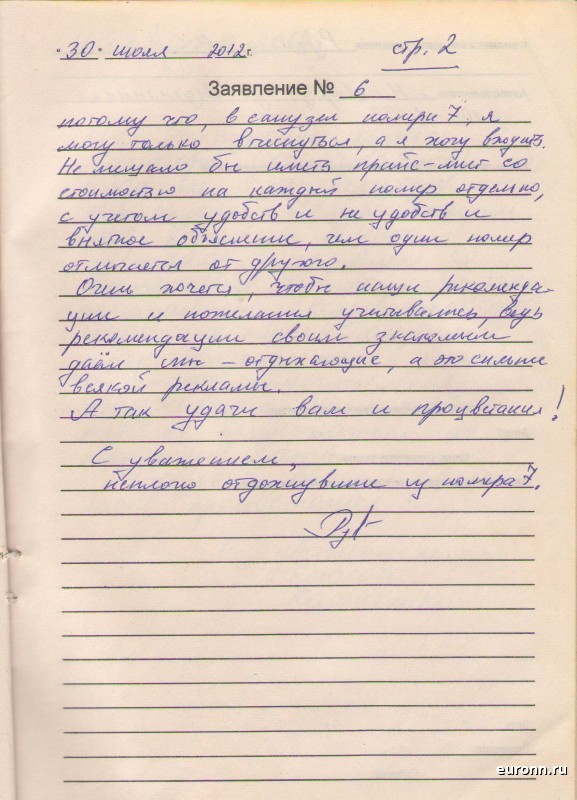 "30" июля 2012г. стр. 2
Заявление № 6
потому что, в санузел номера 7 я
могу только втиснуться, а я хочу входить.
Не мешало бы иметь прайс-лист со
стоимостью на каждый номер отдельно,
с учетом удобств и не удобств и
внятное объяснение, чем один номер
отличается от другого.
Очень хочется, чтобы наши рекоменда-
ции и пожелания учитывались, ведь
рекомендации своим знакомым
даём мы - отдыхающие, а это сильнее
всякой рекламы.
А так удачи вам и процветания!
С уважением,
неплохо отдохнувшие из номера 7.
euronn.ru